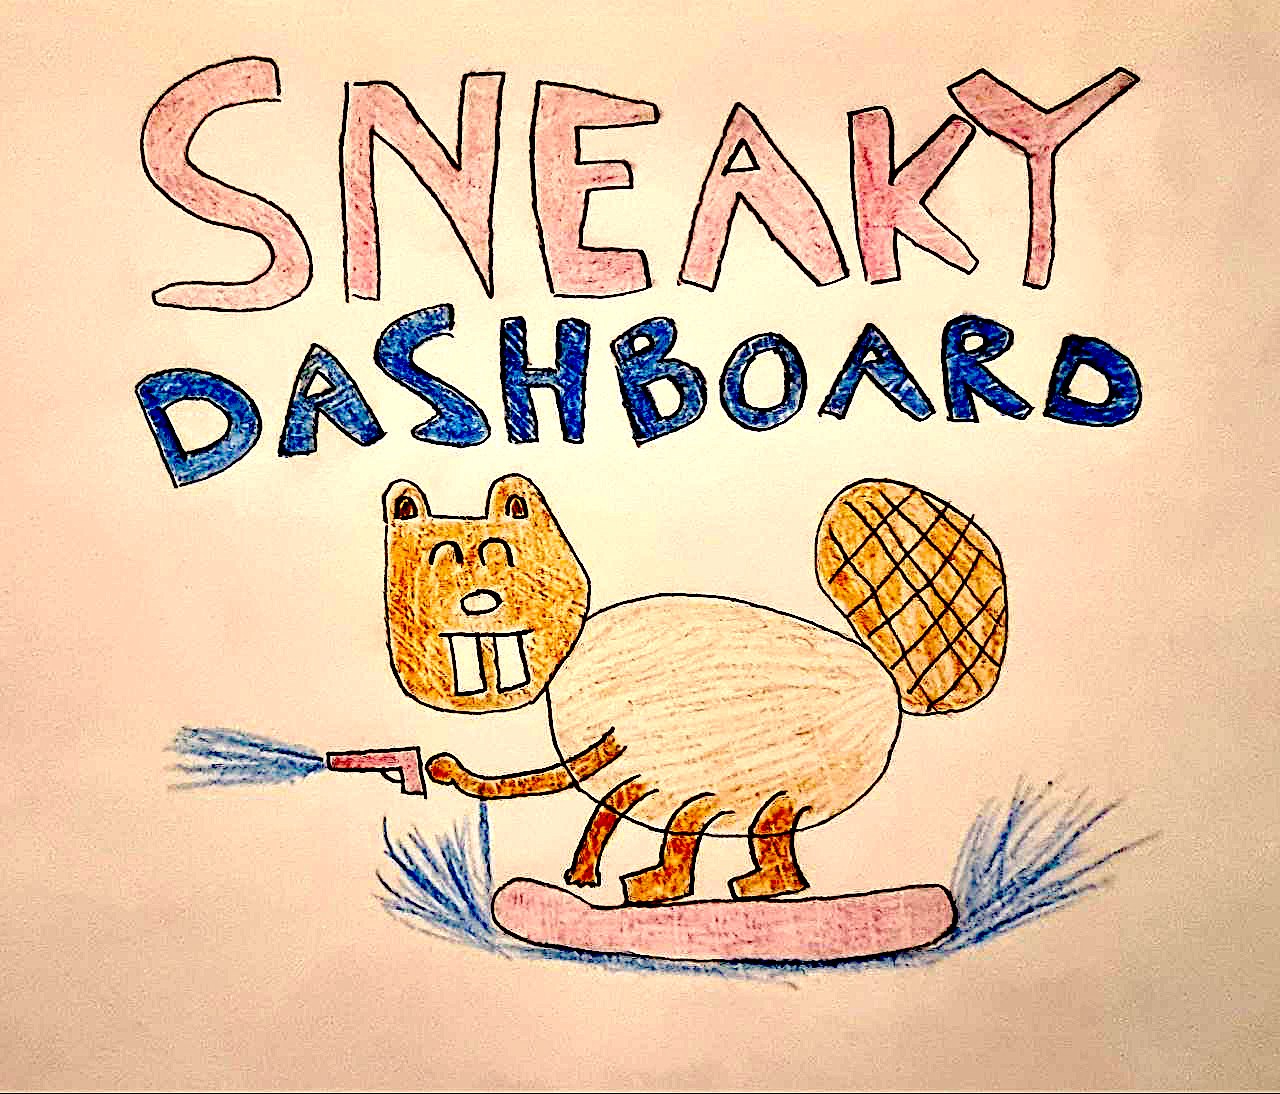 SNEAKY
DASHBOARD